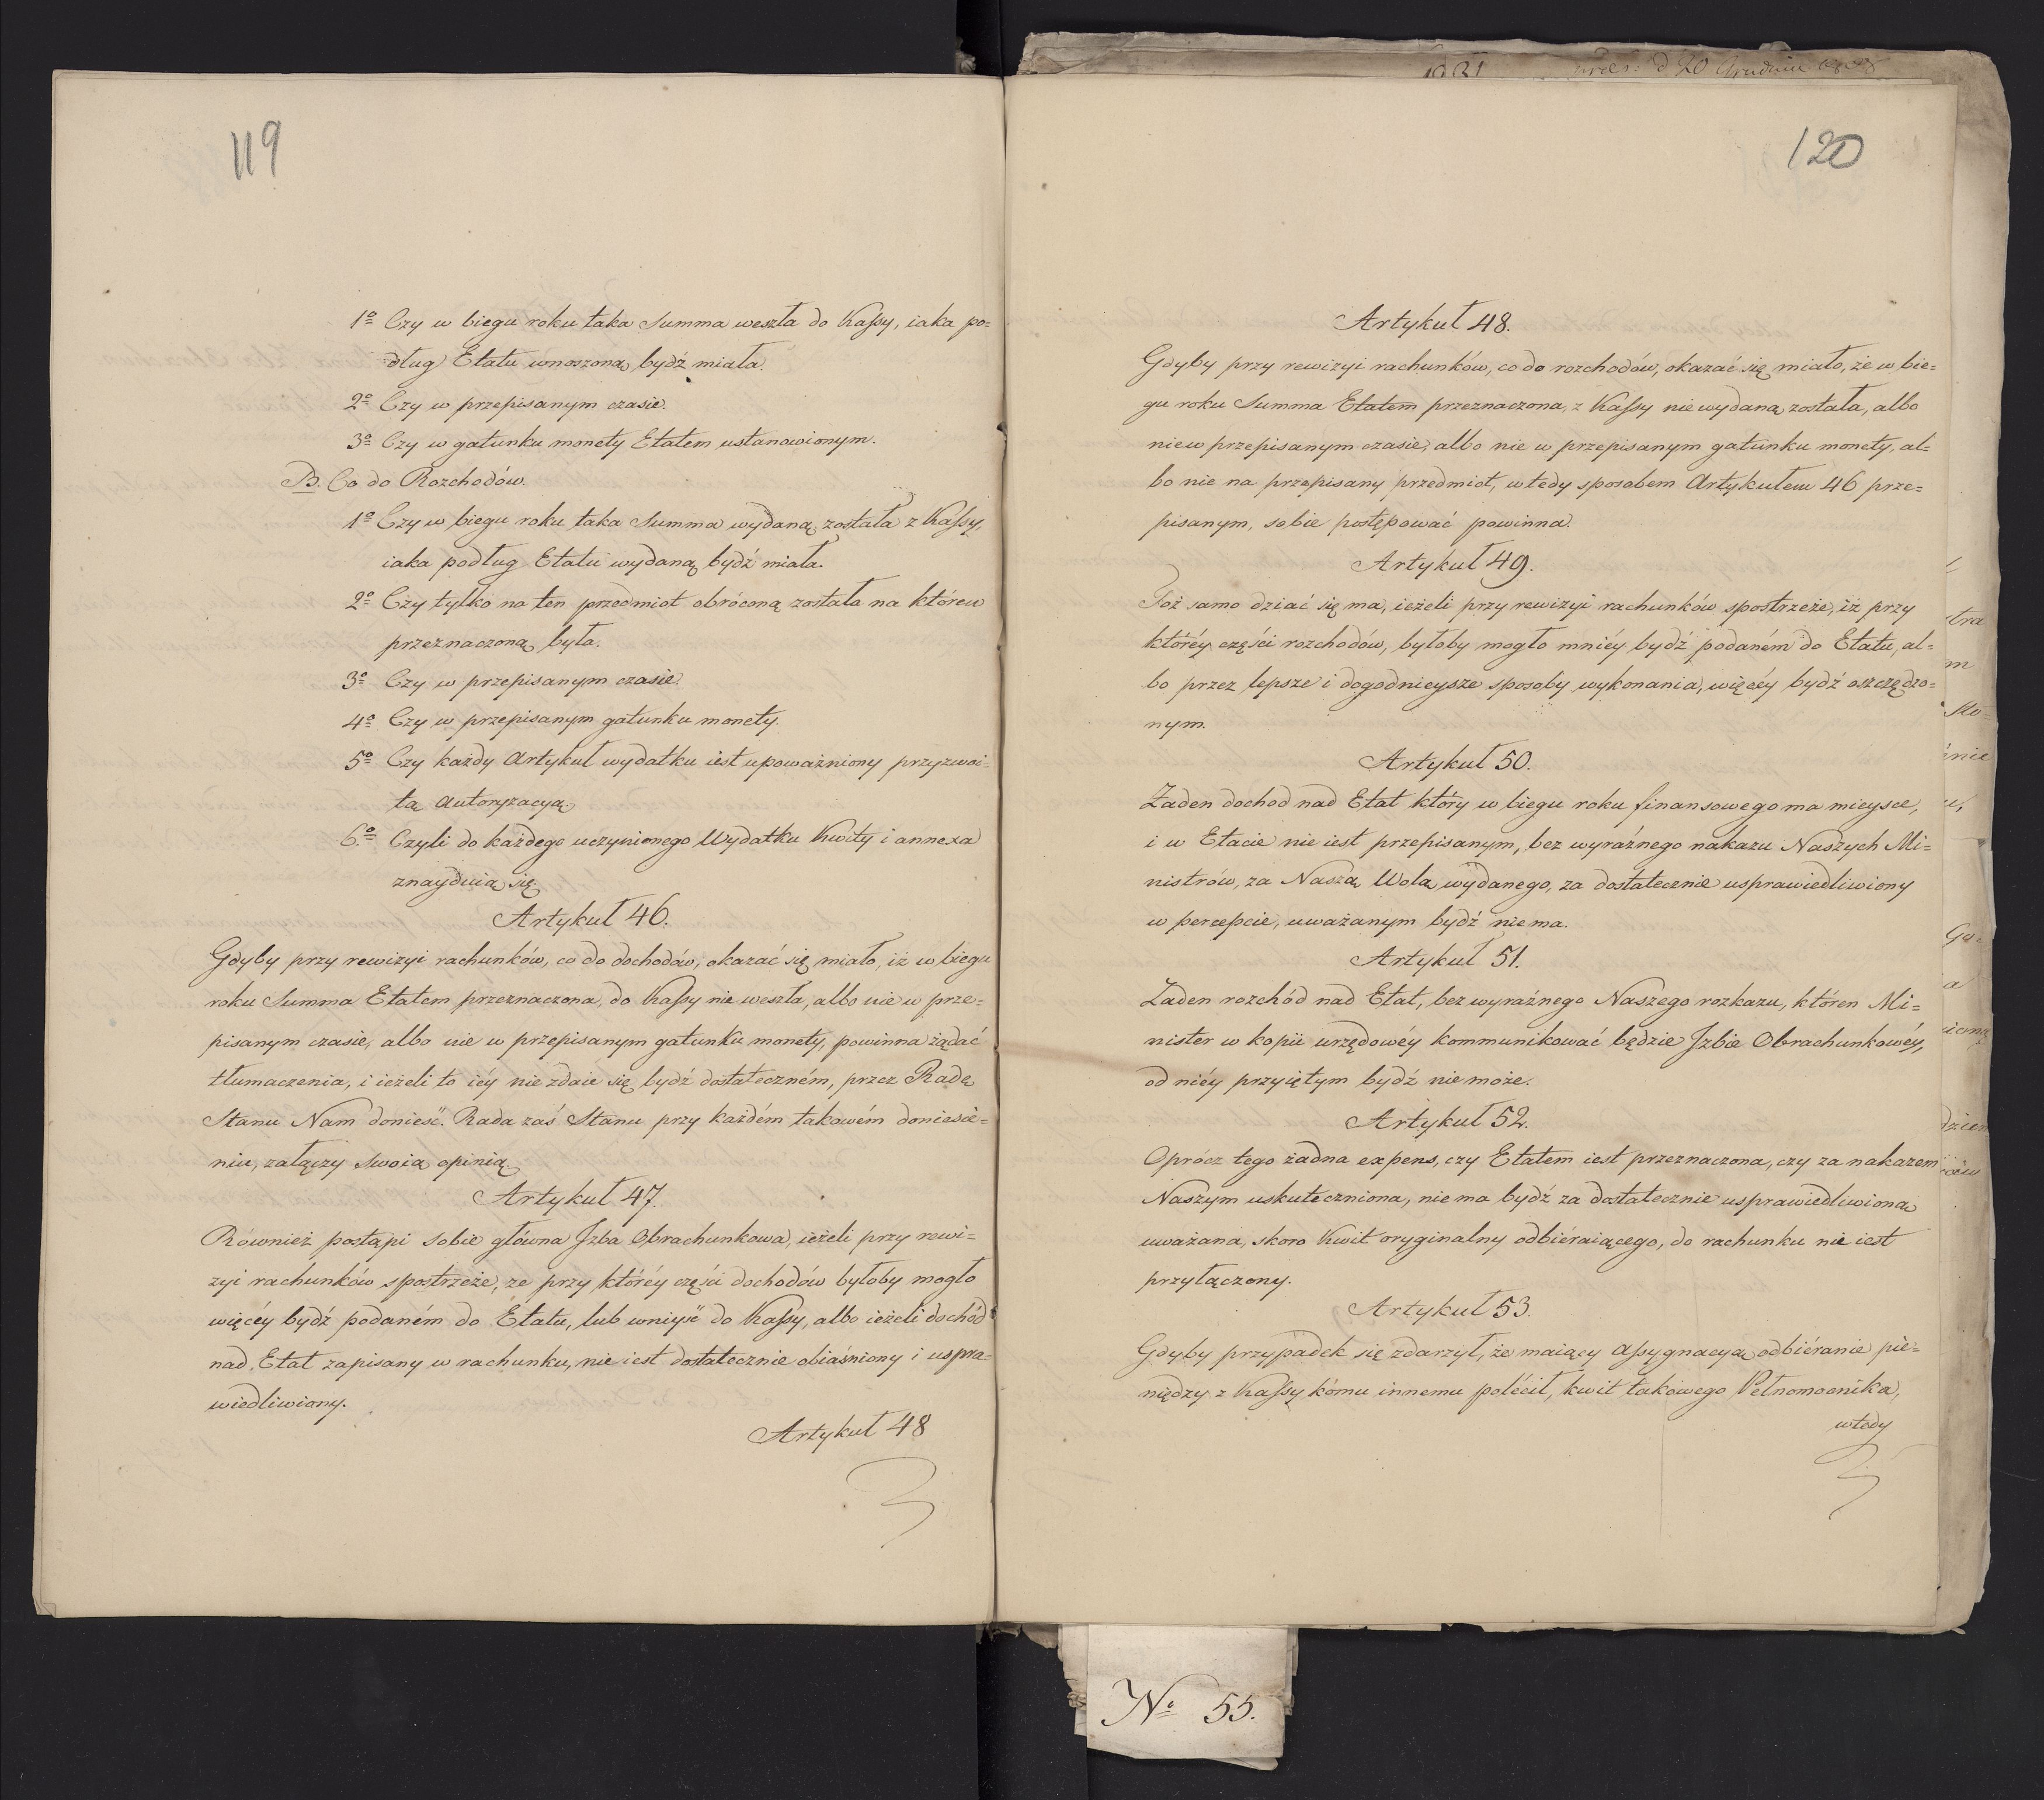 119
1º Czy w biegu roku taka Summa weszła do Kassy, iaka po=
dług Etatu wnoszoną bydź miała.
2º Czy w przepisanym czasie.
3º Czy w gatunku monety Etatem ustanowionym.
B. Co do Rozchodów.
1º Czy w biegu roku taka Summa wydaną została z Kassy,
iaka podług Etatu wydaną bydź miała.
2º Czy tylko na ten przedmiot obróconą została na któren
przeznaczoną była.
3º Czy w przepisanym czasie.
4º Czy w przepisanym gatunku monety.
5º Czy każdy Artykuł wydatku iest upoważniony przyzwoi=
tą Autoryzacyą.
6º Czyli do każdego uczynionego Wydatku Kwity i annexa
znayduią się.
Artykuł 46.
Gdyby przy rewizyi rachunków, co do dochodów, okazać się miało, iż w biegu
roku Summa Etatem przeznaczona, do Kassy nie weszła, albo nie w prze=
pisanym czasie, albo nie w przepisanym gatunku monety, powinna żądać
tłumaczenia, i ieżeli to iéy nie zdaie się bydź dostateczném, przez Radę
Stanu Nam donieść. Rada zaś Stanu przy każdém takowém doniesie=
niu, załączy swoią opinią.
Artykuł 47.
Również postąpi sobie główna Jzba Obrachunkowa, ieżeli przy rewi=
zyi rachunków spostrzeże, że przy któréy części dochodów byłoby mogło
więcéy bydź podaném do Etatu, lub wniyść do Kassy, albo ieżeli dochód
nad Etat zapisany w rachunku, nie iest dostatecznie obiaśniony i uspra=
wiedliwiony.
Artykuł 48
120
Artykuł 48.
Gdyby przy rewizyi rachunków, co do rozchodów, okazać się miało, że w bie=
gu roku Summa Etatem przeznaczona, z Kassy nie wydaną została, albo
nie w przepisanym czasie, albo nie w przepisanym gatunku monety, al=
bo nie na przepisany przedmiot, wtedy sposobem Artykułem 46 prze=
pisanym, sobie postępować powinna.
Artykuł 49.
Toż samo dziać się ma, ieżeli przy rewizyi rachunków spostrzeże, iż przy
któréy części rozchodów, byłoby mogło mniéy bydź podaném do Etatu, al=
bo przez lepsze i dogodnieysze sposoby wykonania, więcéy bydź oszczędzo=
nym.
Artykuł 50.
Żaden dochod nad Etat który w biegu roku finansowego ma mieysce,
i w Etacie nie iest przepisanym, bez wyraźnego nakazu Naszych Mi=
nistrów, za Naszą Wolą wydanego, za dostatecznie usprawiedliwiony
w percepcie, uważanym bydź nie ma.
Artykuł 51.
Żaden rozchód nad Etat, bez wyraźnego Naszego rozkazu, któren Mi=
nister w kopii urzędowéy kommunikować będzie Jzbie Obrachunkowéy,
od niéy przyiętym bydź nie może.
Artykuł 52.
Oprócz tego żadna expens, czy Etatem iest przeznaczona, czy za nakazem
Naszym uskuteczniona, nie ma bydź za dostatecznie usprawiedliwioną
uważana, skoro Kwit oryginalny odbiéraiącego, do rachunku nie iest
przyłączony.
Artykuł 53.
Gdyby przypadek się zdarzył, że maiący Assygnacyą odbiéranie pie=
niędzy z Kassy kómu innemu polécił, kwit takowego Pełnomocnika,
wtedy
Nº 55.